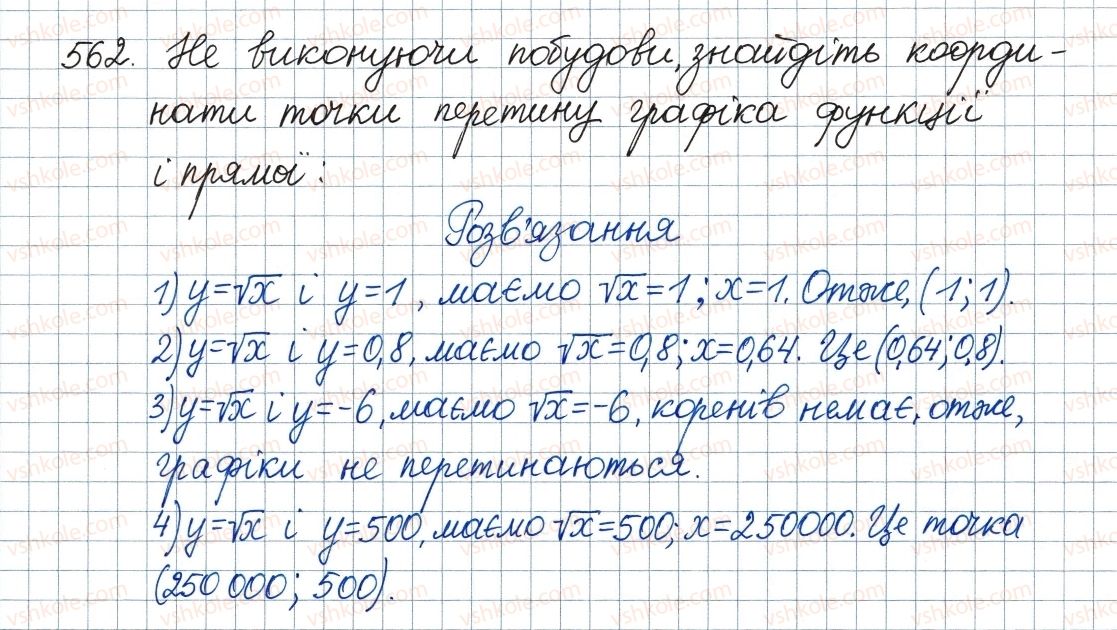 562. Не виконуючи побудови, знайдіть коорди-
нати точки перетину графіка функції
і прямої:
Розв'язання
1) y=√x і y=1, маємо √x=1; x=1. Отже, (1;1).
2) y=√x і y=0,8, маємо √x=0,8; x=0,64. Це (0,64; 0,8).
3) y=√x і y=-6, маємо √x=-6, коренів немає, отже,
графіки не перетинаються.
4) y=√x і y=500, маємо √x=500; x=250000. Це точка
(250 000; 500).
vshkole.com